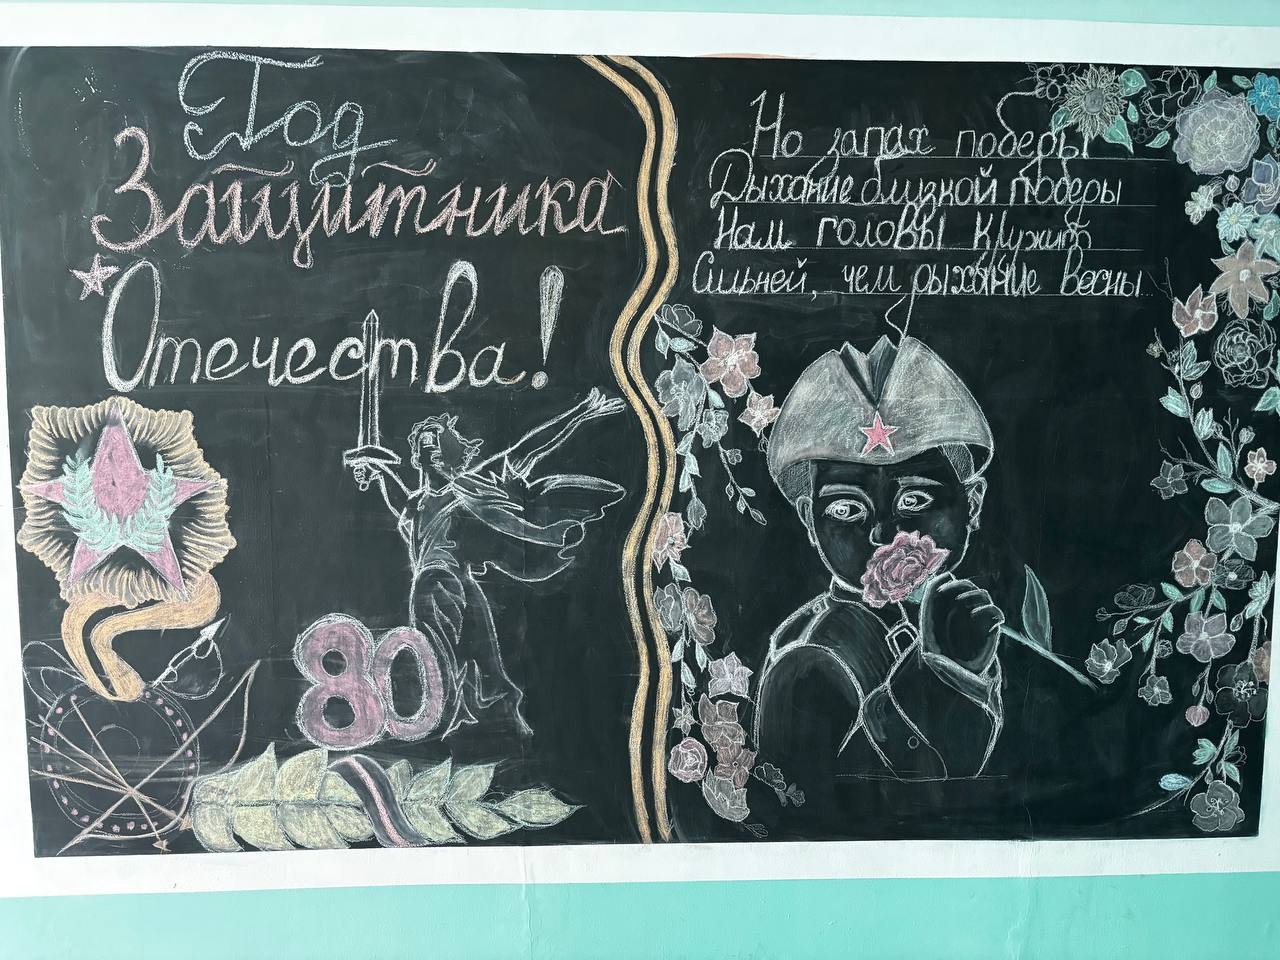 Год
Защитника
Отечества!
80
Но запах победы
Дыхание близкой победы
Нам головы кружит
Сильней, чем дыхание весны